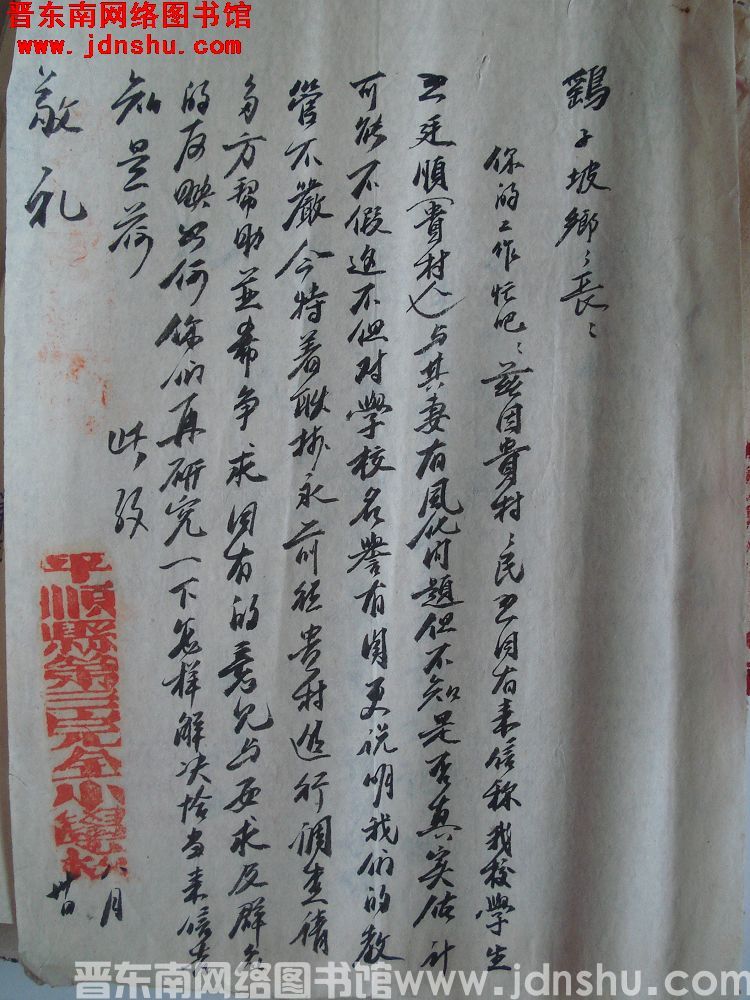 晋东南网络图书馆
www.jdnshu.com
鷄子坡鄉〻長：
你的工作忙吧：兹因貴村〻民王同有来信称我校學生
王廷順（貴村人）与其妻有風化问題但不知是否真实估计
可能不假這不但对學校名譽有関更说明我们的教
管不嚴今特着耿按永前往貴村進行调查請
多方帮助並希争求同有的意见与要求及群众
的反映如何你们再研究一下怎样解决恰当来信告
知是荷 此致
敬礼
平順縣第三完全小學校
八月
卅日
晋东南网络图书馆 www.jdnshu.com